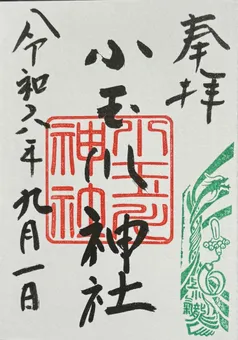 奉拝
小玉川神社
令和六年九月一日
小玉川神社